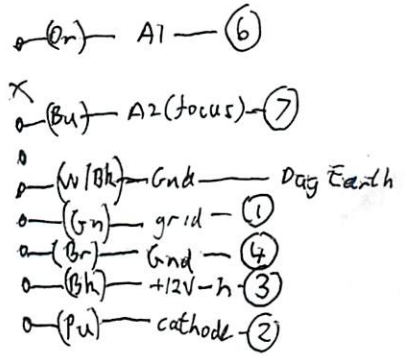 (Or) A1 6
X
(Bu) A2 (focus) 7
(W/Bk) Gnd Dag Earth
(Gn) grid - 1
(Br) Gnd - 4
(Bk) +12V - h 3
(Pu) cathode - 2